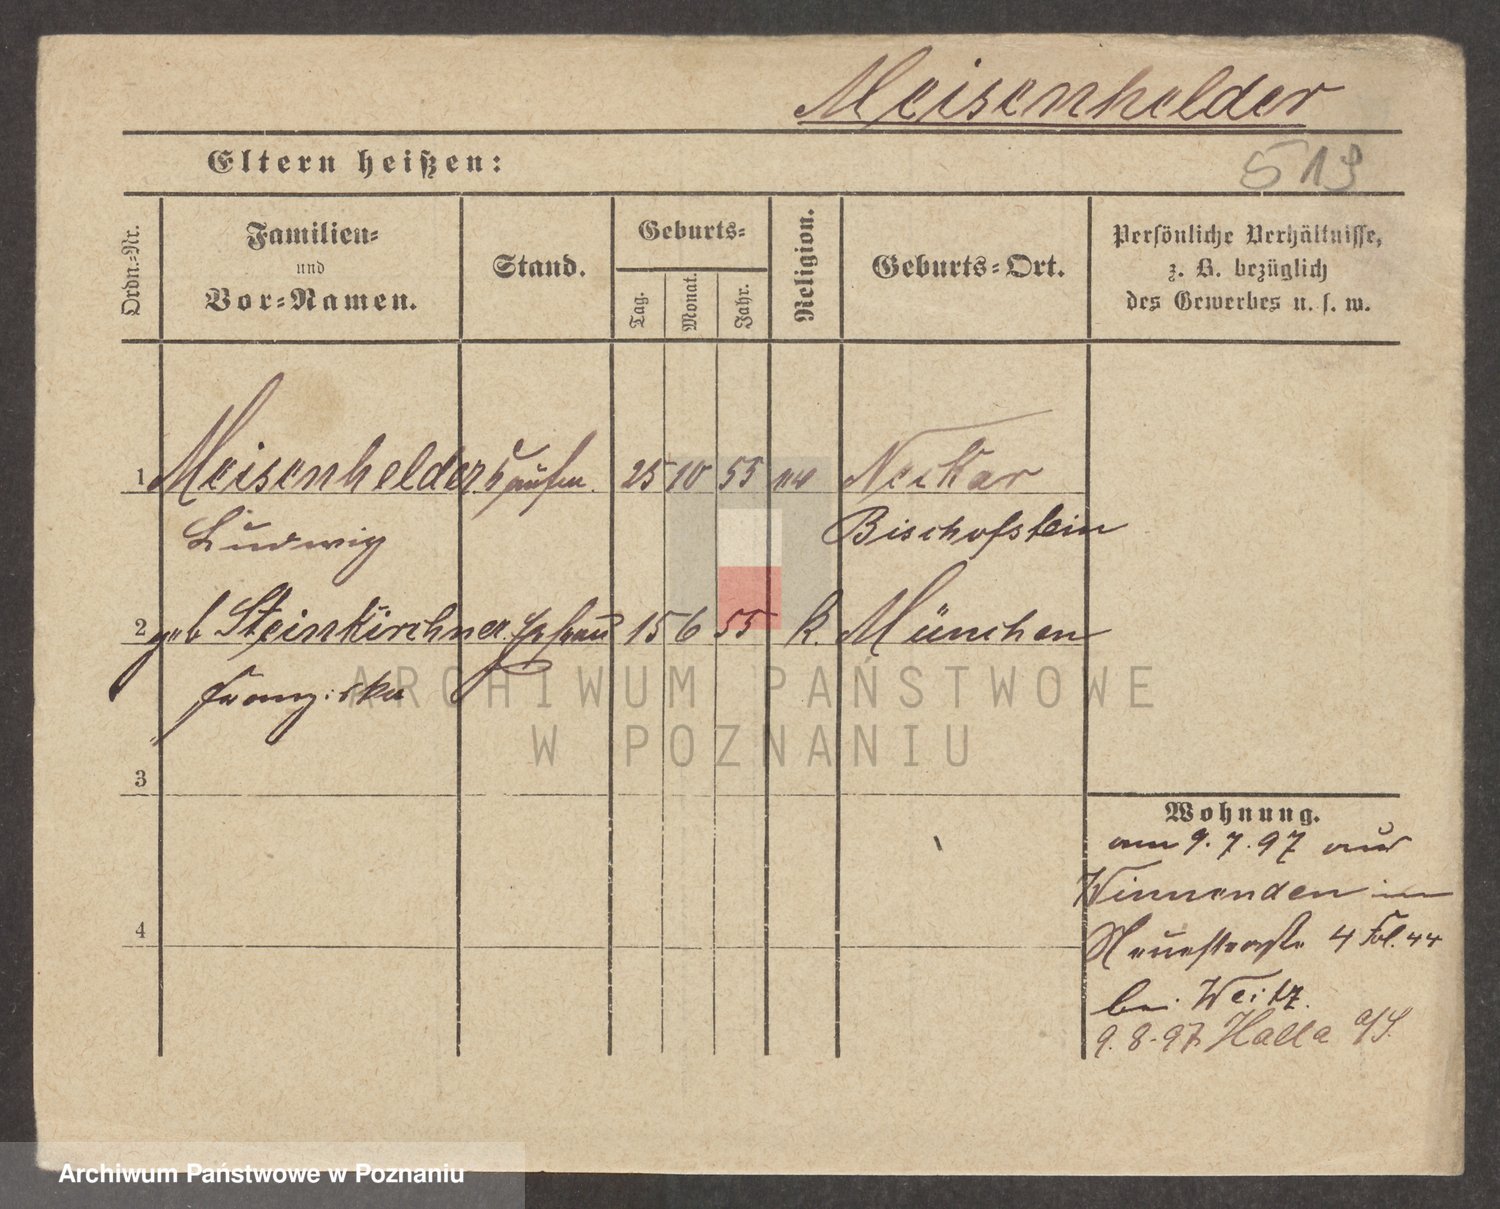 Meisenhelder
Eltern heißen:
513
Ordn.-Nr.
Familien-
und
Vor-Namen.
Stand.
Geburts-
Tag.
Monat.
Jahr.
Religion.
Geburts-Ort.
Persönliche Verhältnisse,
z. B. bezüglich
des Gewerbes u. s. w.
1 Meisenhelder Kaufm. 25 10 55 ev Neckar
Ludwig Bischofstein
2 geb Steinkirchner Ehefrau 15 6 55 k. München
Franziska
ARCHIWUM PAŃSTWOWE
W POZNANIU
3
4
Wohnung.
am 9.7.97 aus
Winnenden in
Neuestraße 4 Fol. 44
bei Weitz.
9.8.97 Halle a/S.
Archiwum Państwowe w Poznaniu